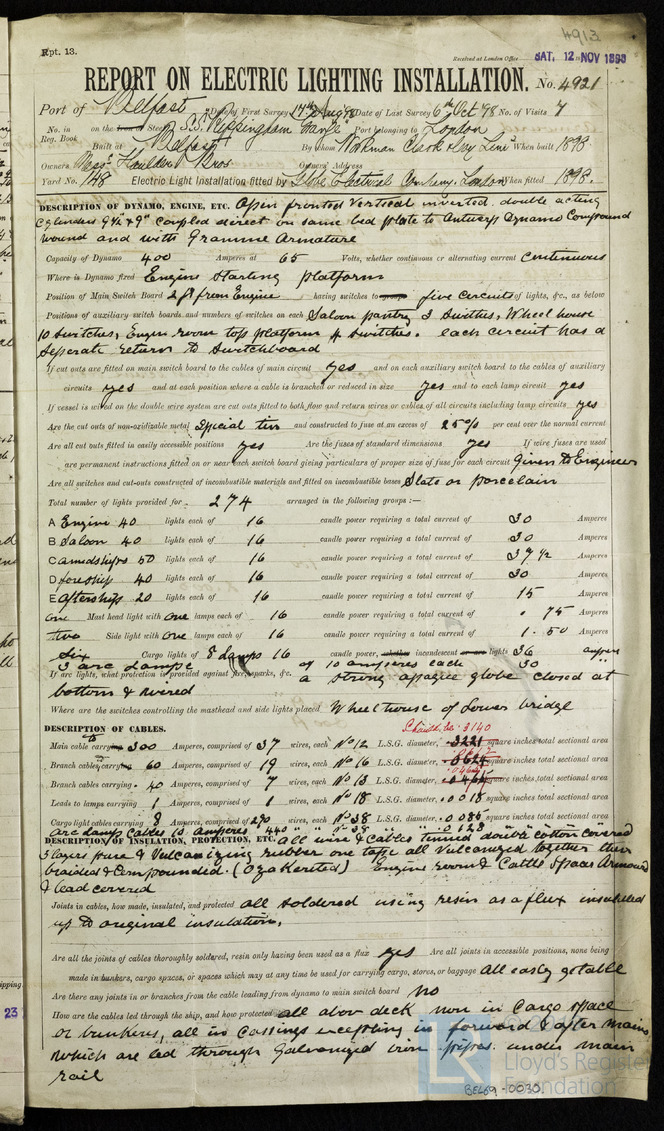 4913
Rpt. 13.
Received at London Office SAT. 12 NOV 1898
REPORT ON ELECTRIC LIGHTING INSTALLATION. No. 4921
Port of Belfast Date of First Survey 17th Aug 98 Date of Last Survey 6th Oct 98 No. of Visits 7
No. in Reg. Book on the Iron or Steel S.S. "Rippingham Grange" Port belonging to London
Built at Belfast By whom Workman Clark & Coy Limd When built 1898
Owners Messrs Houlder Bros Owners' Address
Yard No. 148 Electric Light Installation fitted by Globe Electrical Company. London When fitted 1898.
DESCRIPTION OF DYNAMO, ENGINE, ETC. Open fronted vertical inverted double acting
cylinders 9½" × 9" coupled direct on same bed plate to Antwerp Dynamo Compound
wound and with Gramme Armature
Capacity of Dynamo 400 Amperes at 65 Volts, whether continuous or alternating current continuous
Where is Dynamo fixed Engine starting platform
Position of Main Switch Board 2 ft from Engine having switches to groups five circuits of lights, &c., as below
Positions of auxiliary switch boards and numbers of switches on each Saloon pantry 3 switches, Wheel house
10 switches, Engine room top platform 4 switches. each circuit has a
seperate return to switchboard
If cut outs are fitted on main switch board to the cables of main circuit yes and on each auxiliary switch board to the cables of auxiliary
circuits yes and at each position where a cable is branched or reduced in size yes and to each lamp circuit yes
If vessel is wired on the double wire system are cut outs fitted to both flow and return wires or cables of all circuits including lamp circuits yes
Are the cut outs of non-oxidizable metal Special tin and constructed to fuse at an excess of 25% per cent over the normal current
Are all cut outs fitted in easily accessible positions yes Are the fuses of standard dimensions yes If wire fuses are used
are permanent instructions fitted on or near each switch board giving particulars of proper size of fuse for each circuit Given to Engineer
Are all switches and cut-outs constructed of incombustible materials and fitted on incombustible bases Slate or porcelain
Total number of lights provided for 274 arranged in the following groups :—
A Engine 40 lights each of 16 candle power requiring a total current of 30 Amperes
B Saloon 40 lights each of 16 candle power requiring a total current of 30 Amperes
C amidships 50 lights each of 16 candle power requiring a total current of 37½ Amperes
D foreship 40 lights each of 16 candle power requiring a total current of 30 Amperes
E aftership 20 lights each of 16 candle power requiring a total current of 15 Amperes
one Mast head light with one lamps each of 16 candle power requiring a total current of .75 Amperes
two Side light with one lamps each of 16 candle power requiring a total current of 1.50 Amperes
Six Cargo lights of 8 lamps 16 candle power, whether incandescent or arc lights 36 ampers
3 arc lamps of 10 amperes each 30 "
If arc lights, what protection is provided against fire, sparks, &c. a strong opaque globe closed at
bottom & wired
Where are the switches controlling the masthead and side lights placed Wheelhouse of Lower bridge
DESCRIPTION OF CABLES. should be .3140
Main cable carrying 300 Amperes, comprised of 37 wires, each No 12 L.S.G. diameter, .3221 square inches total sectional area
Branch cables carrying 60 Amperes, comprised of 19 wires, each No 16 L.S.G. diameter, .0624 square inches total sectional area
Branch cables carrying 40 Amperes, comprised of 7 wires, each No 13 L.S.G. diameter, square inches total sectional area
Leads to lamps carrying 1 Amperes, comprised of 1 wires, each No 18 L.S.G. diameter, .0018 square inches total sectional area
Cargo light cables carrying 8 Amperes, comprised of 290 wires, each No 38 L.S.G. diameter, .0086 square inches total sectional area
arc Lamp Cables 10 Amperes 440 " " No 38 " " .0128
DESCRIPTION OF INSULATION, PROTECTION, ETC. All wire & cables tinned double cotton covered
3 layers pure & Vulcanizing rubber one tape all Vulcanized together then
braided & Compounded. (Ozokerited) Engine room & Cattle spaces Armoured
& lead covered
Joints in cables, how made, insulated, and protected all soldered using resin as a flux insulated
up to original insulation.
Are all the joints of cables thoroughly soldered, resin only having been used as a flux yes Are all joints in accessible positions, none being
made in bunkers, cargo spaces, or spaces which may at any time be used for carrying cargo, stores, or baggage all easily getable
Are there any joints in or branches from the cable leading from dynamo to main switch board No
How are the cables led through the ship, and how protected all above deck none in Cargo space
or bunkers, all in Casings excepting in forward & after mains
which are led through Galvanized iron pipes under main
rail
23
Lloyd's Register
Foundation
BEL69-0030